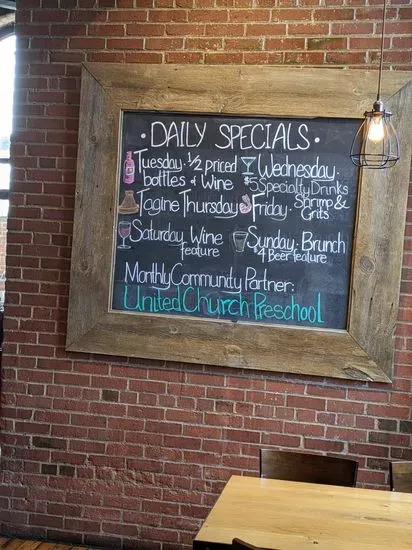 • DAILY SPECIALS •
Tuesday · 1/2 priced bottles of Wine
Wednesday · $5 Specialty Drinks
Tagine Thursday
Friday · Shrimp & Grits
Saturday · Wine feature
Sunday · Brunch $4 Beer feature
Monthly Community Partner:
United Church Preschool